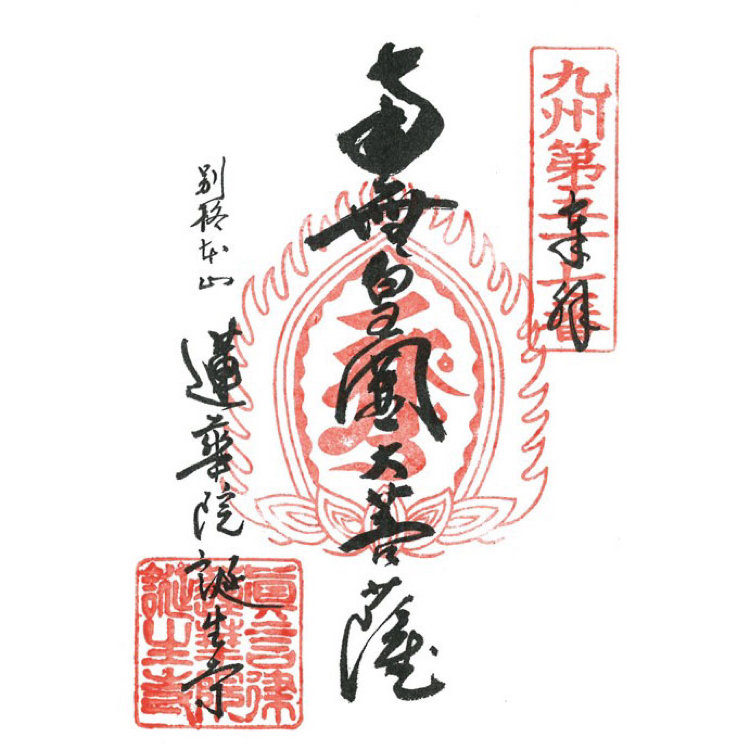 九州第五十七番
奉拝
南無皇圓大菩薩
別格本山
蓮華院誕生寺
眞言律
蓮華院
誕生寺